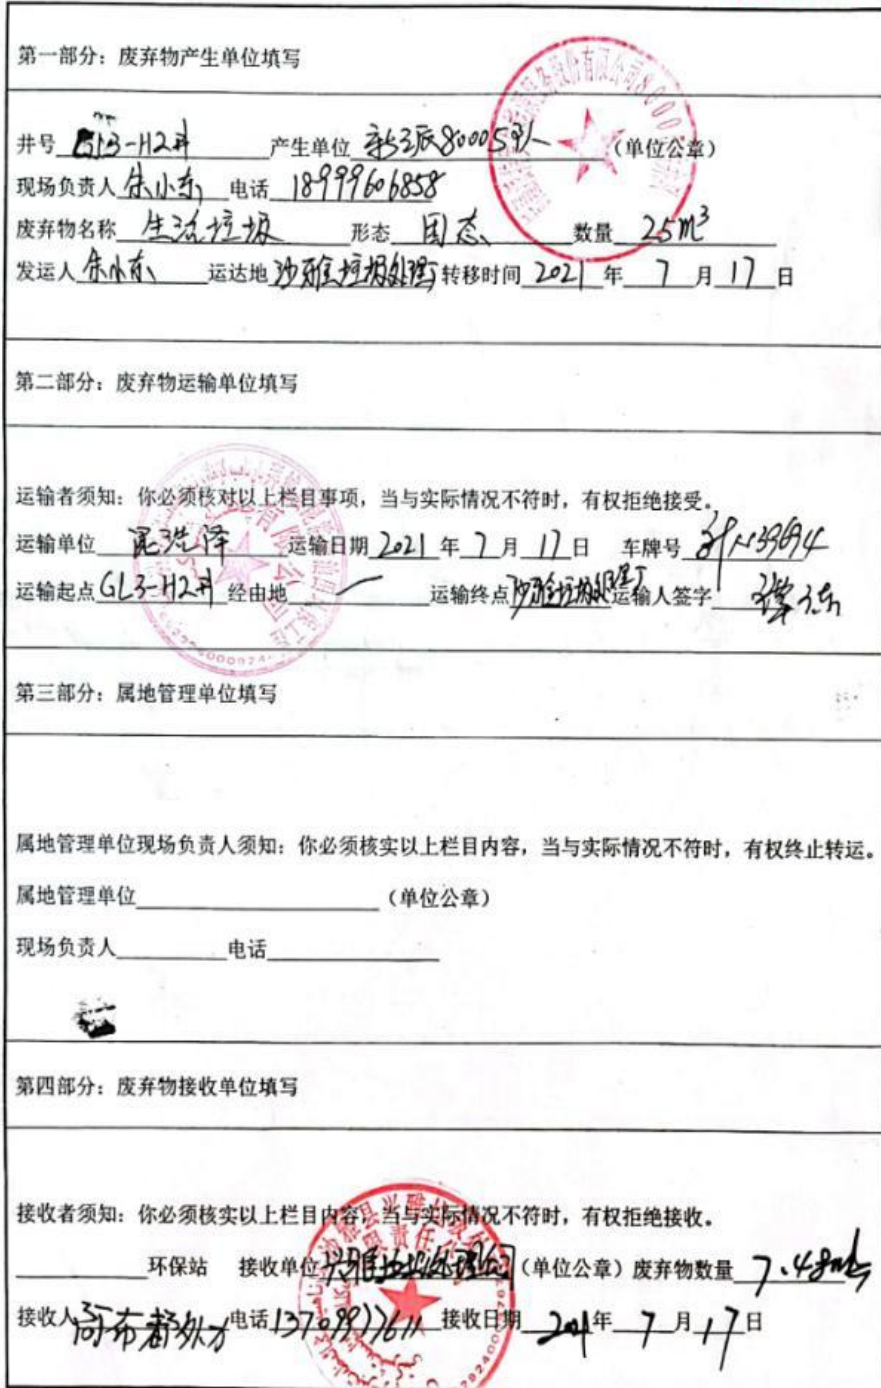 第一部分：废弃物产生单位填写
井号 GL3-H2井 产生单位 80005队 （单位公章）
现场负责人 朱小东 电话 18999606858
废弃物名称 生活垃圾 形态 固态 数量 25m³
发运人 朱小东 运达地 沙雅垃圾处理厂 转移时间 2021 年 7 月 17 日
第二部分：废弃物运输单位填写
运输者须知：你必须核对以上栏目事项，当与实际情况不符时，有权拒绝接受。
运输单位 运输日期 2021 年 7 月 17 日 车牌号 新N39694
运输起点 GL3-H2井 经由地 一 运输终点 沙雅垃圾处理厂 运输人签字
第三部分：属地管理单位填写
属地管理单位现场负责人须知：你必须核实以上栏目内容，当与实际情况不符时，有权终止转运。
属地管理单位 （单位公章）
现场负责人 电话
第四部分：废弃物接收单位填写
接收者须知：你必须核实以上栏目内容，当与实际情况不符时，有权拒绝接收。
环保站 接收单位 兴雅垃圾处理 （单位公章）废弃物数量 7.48
接收人 电话 13709977611 接收日期 2021 年 7 月 17 日